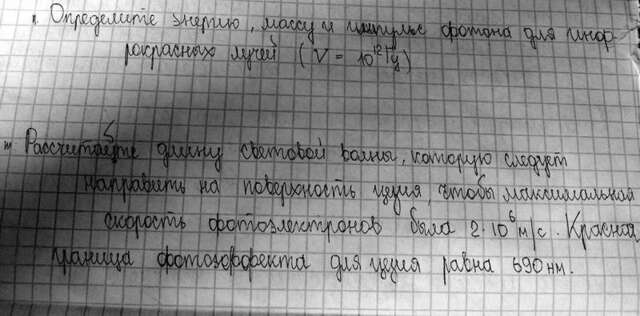 Определите энергию, массу и импульс фотона для инф-
рокрасных лучей (V = 10¹²Гц)
Рассчитайте длину световой волны, которую следует
направить на поверхность цезия, чтобы максимальная
скорость фотоэлектронов была 2·10⁶м/с. Красная
граница фотоэффекта для цезия равна 690 нм.